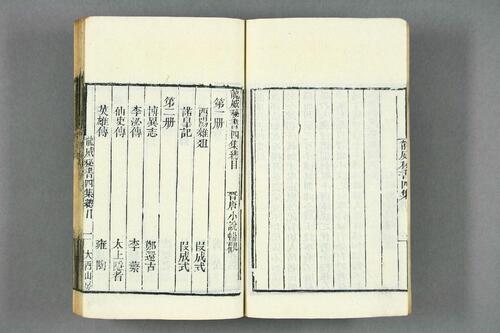 龍威秘書四集總目 晉唐小說暢觀
第一册
酉陽雜俎 段成式
諾臯記 段成式
第二册
博異志 鄭還古
李泌傳 李蘩
仙吏傳 太上隱者
英雄傳 雍陶
龍威秘書四集總目 一 大酉山房
龍威秘書四集